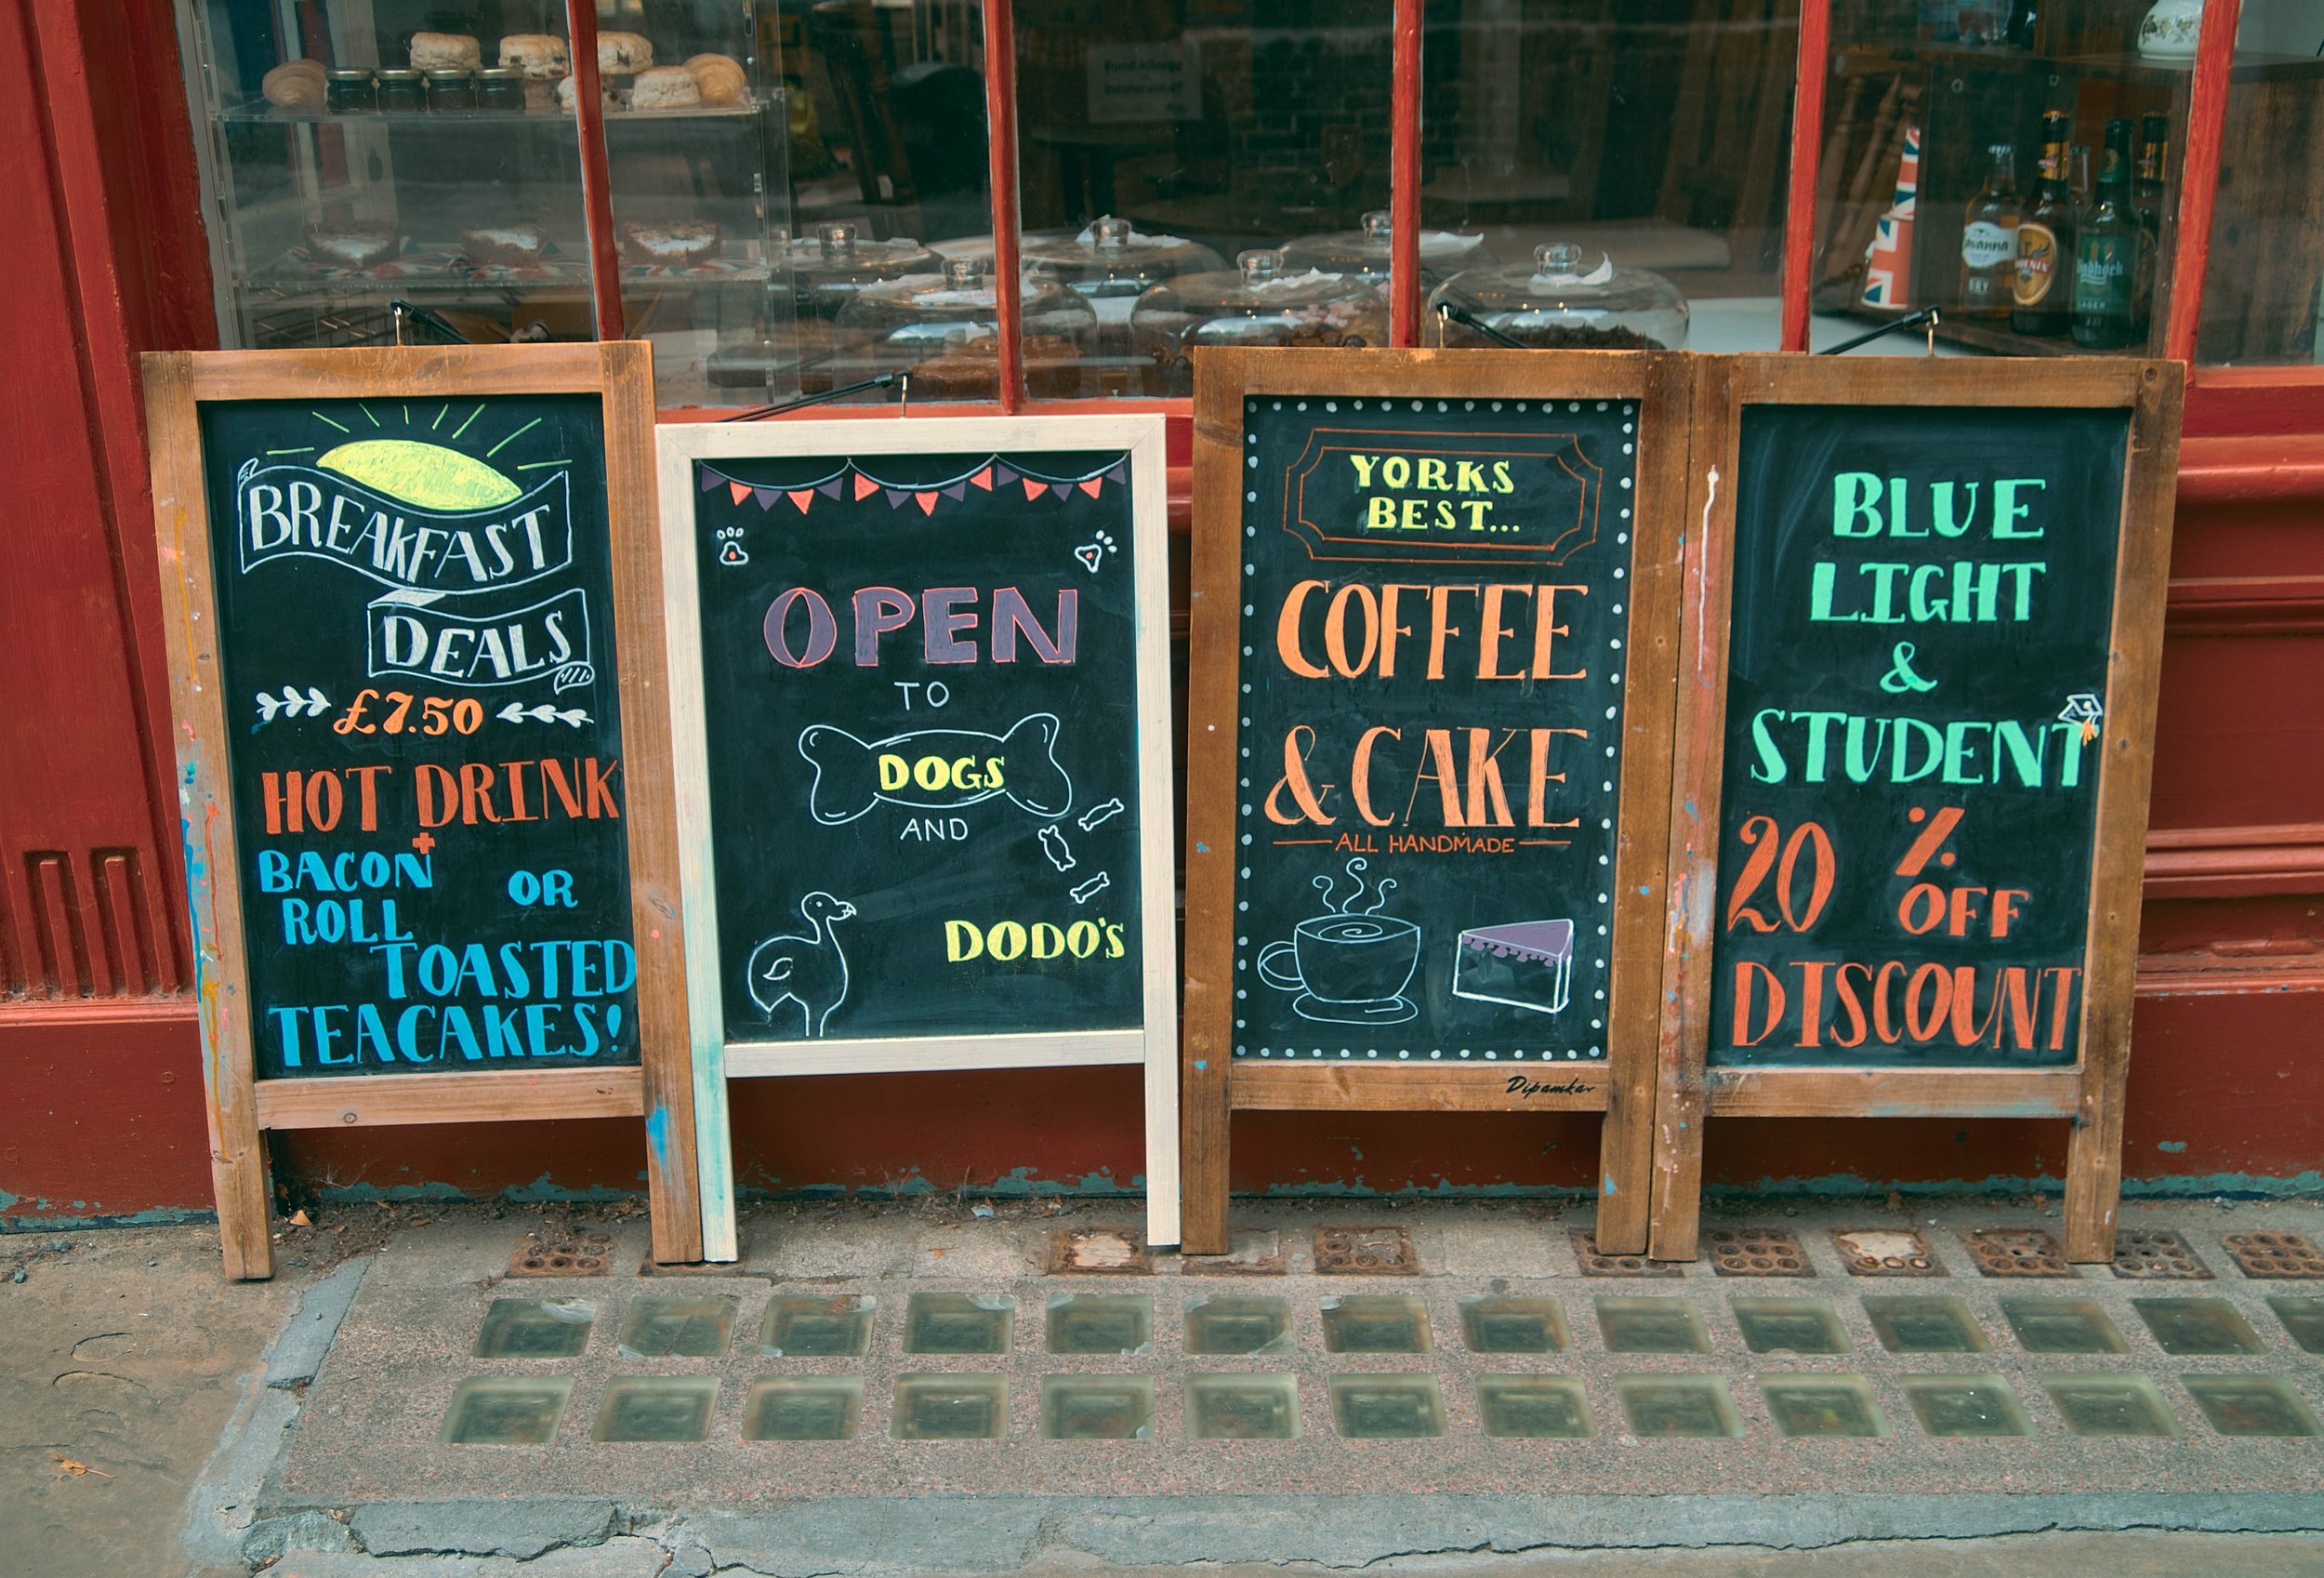 BREAKFAST
DEALS
£7.50
HOT DRINK
+
BACON
ROLL
OR
TOASTED
TEACAKES!
OPEN
TO
DOGS
AND
DODO'S
YORKS
BEST...
COFFEE
& CAKE
ALL HANDMADE
Dipamkar
BLUE
LIGHT
&
STUDENT
20 %
OFF
DISCOUNT
LAGER